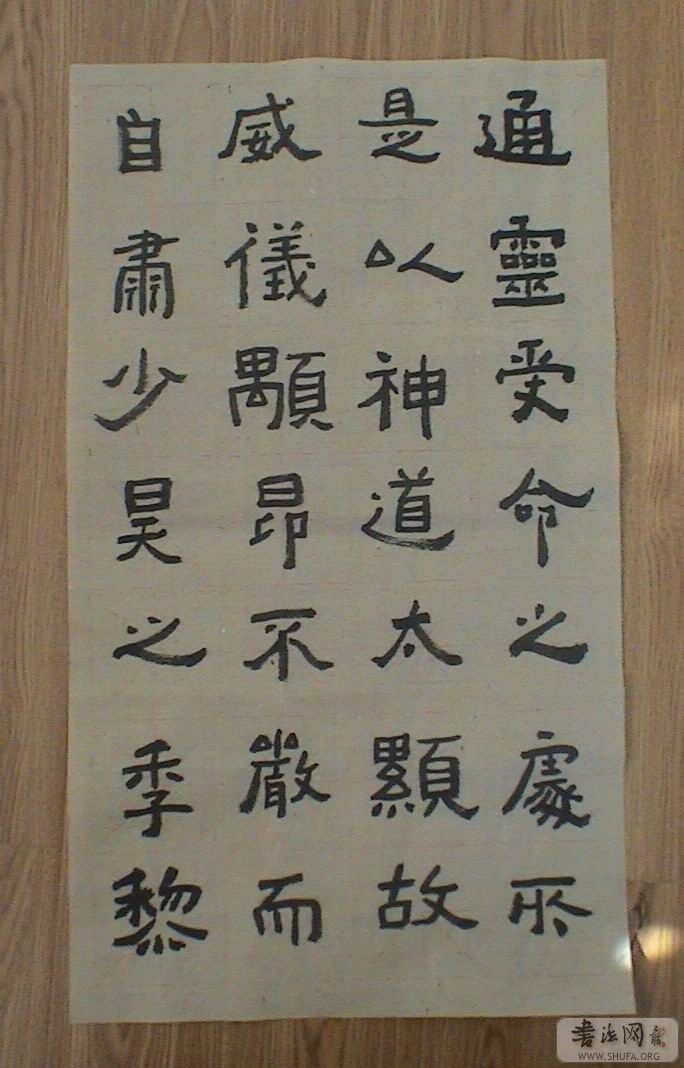 通靈受命之處所
是以神道太顯故
威儀顒昂不嚴而
自肅少昊之季黎
書法网
WWW.SHUFA.ORG